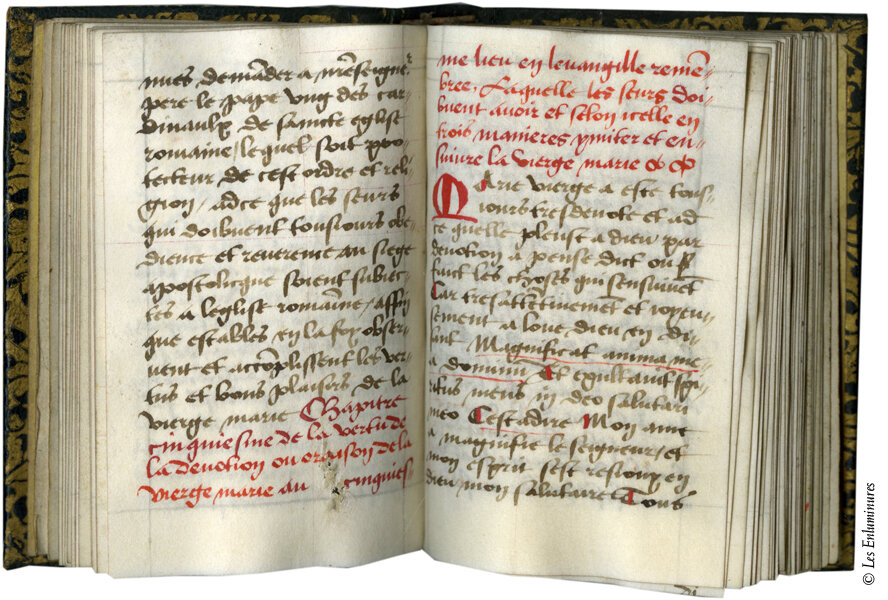 nues demãder a nr̃e seignẽr
pere le pape vng des car-
dinaulx de saincte eglise
romaine, lequel soit pro-
tecteur de cest ordre et reli-
gion, adce que les seurs
qui doibuent tousiours obe-
dience et reuerence au siege
apostolicque soient subiec-
tes a leglise romaine, affin
que estables en la foy obser-
uent et accõplissent les ver-
tus et bons plaisirs de la
vierge marie Chapitre
cinquiesme de la vertu de
la deuotion ou oraison de la
vierge marie au cinquies-
me lieu en leuangille remẽ-
bree. Laquelle les seurs doi-
buent auoir et selon icelle en
trois manieres ymiter et en-
suiure la vierge marie
Marie vierge a este tous-
iours tresdeuote et ad
ce quelle pleust a dieu par
deuotion a pense dict ou
faict les choses qui sensuiuẽt
Car tresattẽtiuemẽt et ioyeu-
sement a loue dieu en di-
sant Magnificat anima me-
a dominũ Et exultauit spi-
ritus meus in deo salutari
meo Cestadire Mon ame
a magnifie le seigneur et
mon esprit sest resiouy en
dieu mon salutaire Tous
© Les Enluminures